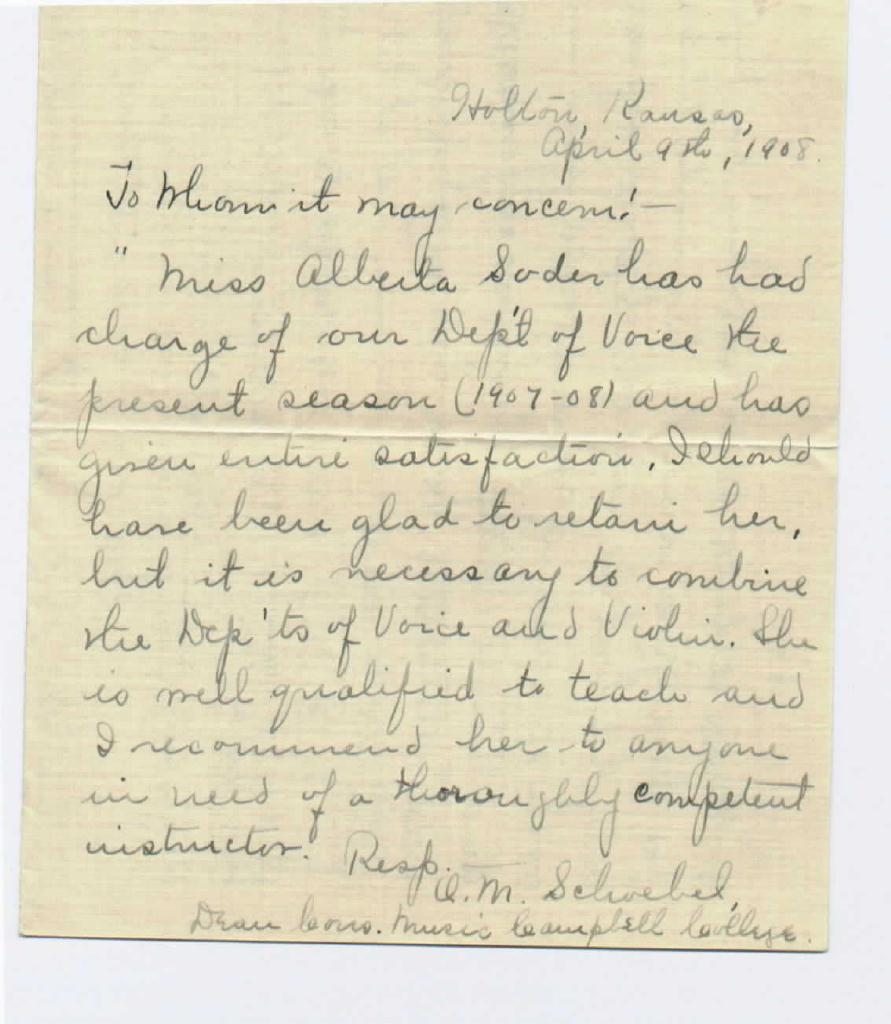 Holton, Kansas,
April 9th, 1908.
To Whom it may concern:—
" Miss Alberta Soder has had
charge of our Dep't of Voice the
present season (1907-08) and has
given entire satisfaction. I should
have been glad to retain her,
but it is necessary to combine
the Dep'ts of Voice and Violin. She
is well qualified to teach and
I recommend her to anyone
in need of a thoroughly competent
instructor.
Resp.
O.M. Schoebel,
Dean Cons. Music Campbell College.